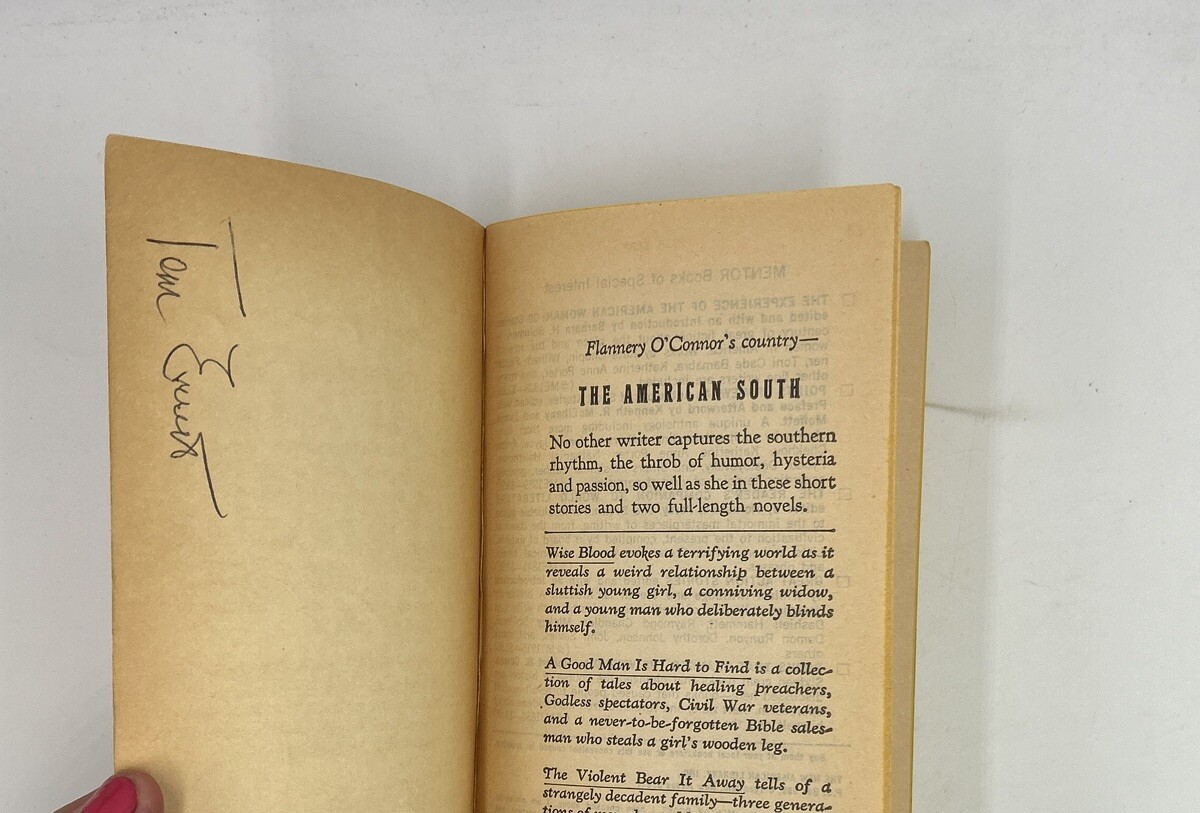 Tom Everett
Flannery O'Connor's country—
THE AMERICAN SOUTH
No other writer captures the southern
rhythm, the throb of humor, hysteria
and passion, so well as she in these short
stories and two full-length novels.
Wise Blood evokes a terrifying world as it
reveals a weird relationship between a
sluttish young girl, a conniving widow,
and a young man who deliberately blinds
himself.
A Good Man Is Hard to Find is a collec-
tion of tales about healing preachers,
Godless spectators, Civil War veterans,
and a never-to-be-forgotten Bible sales-
man who steals a girl's wooden leg.
The Violent Bear It Away tells of a
strangely decadent family—three genera-
tions of